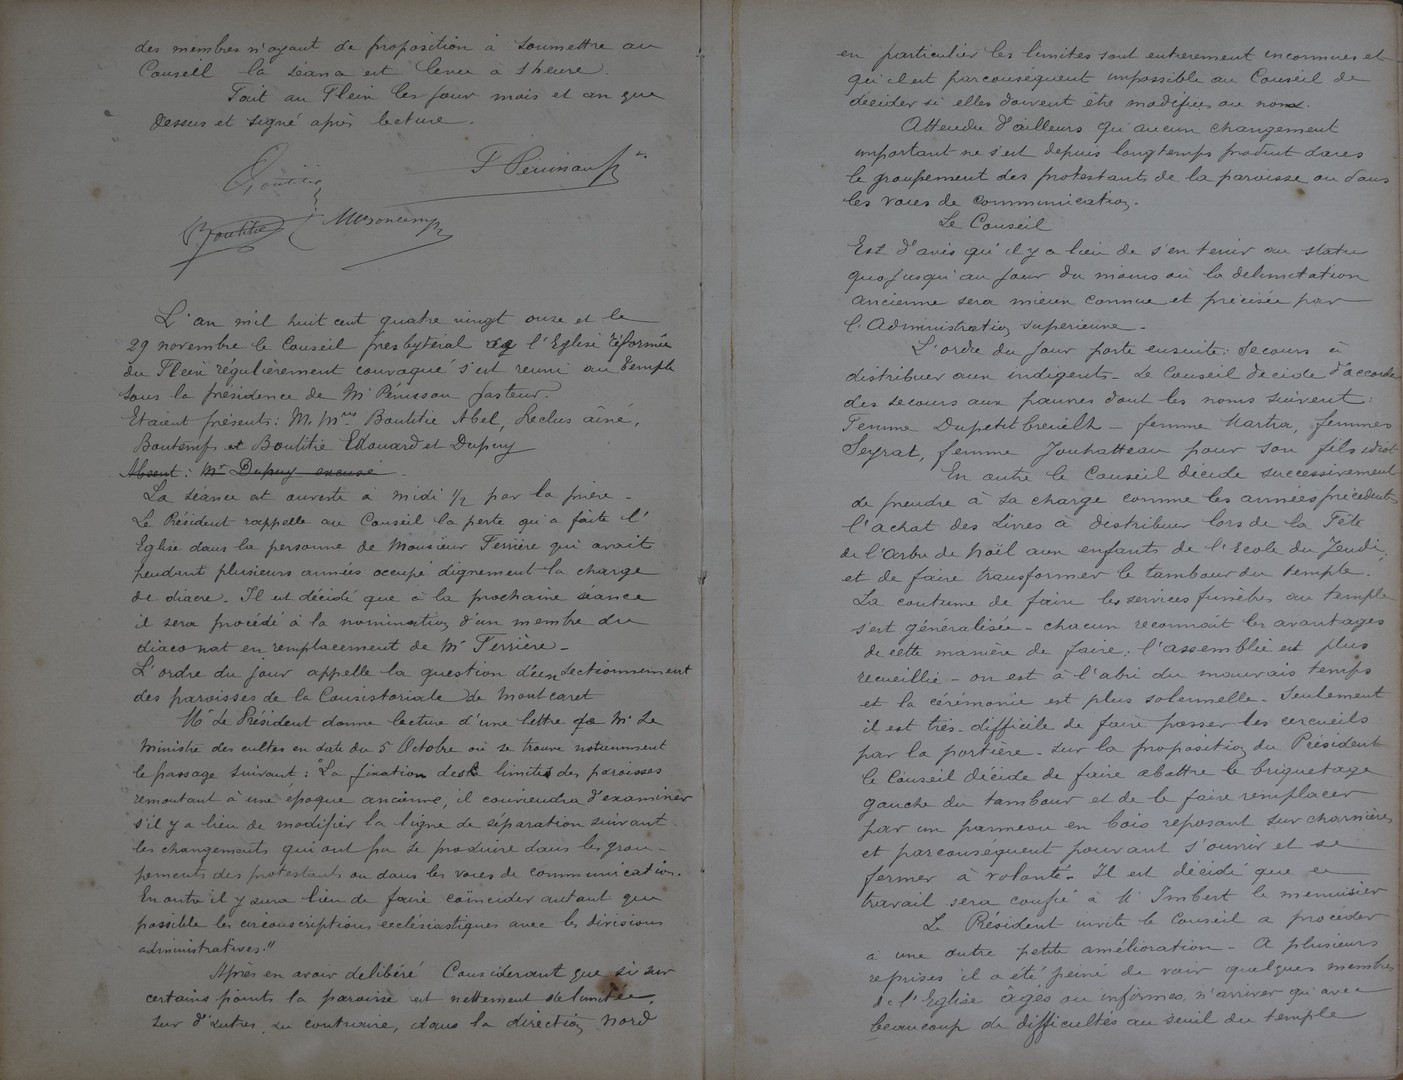 des membres n'ayant de proposition à soumettre au
Conseil la séance est levée à 1 heure.
Fait au Fleix les jour mois et an que
dessus et signé après lecture.
Boutitie
F Pérusson
Boutitie
L'an mil huit cent quatre vingt onze et le
29 novembre le Conseil presbytéral de l'Eglise réformée
du Fleix régulièrement convoqué s'est réuni au temple
sous la présidence de Mr Pérusson pasteur.
Etaient présents: M. Mrs Boutitie Abel, Reclus aîné,
Bontemps et Boutitie Edouard et Dupuy
Absent: Mr Dupuy excusé.
La séance est ouverte à midi 1/2 par la prière.
Le Président rappelle au Conseil la perte qu'a faite l'
Eglise dans la personne de Monsieur Ferrière qui avait
pendant plusieurs années occupé dignement la charge
de diacre. Il est décidé que à la prochaine séance
il sera procédé à la nomination d'un membre du
diaconat en remplacement de Mr Ferrière.
L'ordre du jour appelle la question d'un sectionnement
des paroisses de la Consistoriale de Montcaret
Mr Le Président donne lecture d'une lettre de Mr Le
Ministre des cultes en date du 5 Octobre où se trouve notamment
le passage suivant: "La fixation des limites des paroisses
remontant à une époque ancienne, il conviendra d'examiner
s'il y a lieu de modifier la ligne de séparation suivant
les changements qui ont pu se produire dans les grou-
pements des protestants ou dans les voies de communication.
En outre il y aura lieu de faire coïncider autant que
possible les circonscriptions ecclésiastiques avec les divisions
administratives."
Après en avoir délibéré Considérant que si sur
certains points la paroisse est nettement délimitée,
sur d'autres, au contraire, dans la direction Nord
en particulier les limites sont entièrement inconnues et
qu'il est parconséquent impossible au Conseil de
décider si elles doivent être modifiées ou non.
Attendu d'ailleurs qu'aucun changement
important ne s'est depuis longtemps produit dans
le groupement des protestants de la paroisse ou dans
les voies de communication.
Le Conseil
Est d'avis qu'il y a lieu de s'en tenir au statu
quo jusqu'au jour du moins où la délimitation
ancienne sera mieux connue et précisée par
l'Administration supérieure.
L'ordre du jour porte ensuite: Secours à
distribuer aux indigents. Le Conseil décide d'accorder
des secours aux pauvres dont les noms suivent:
Femme - femme Martra, femmes
Seyrat, femme Jouhatteau pour son fils idiot
En outre le Conseil décide successivement
de prendre à sa charge comme les années précédentes
l'achat des Livres à distribuer lors de la Fête
de l'Arbre de Noël aux enfants de l'Ecole du Jeudi,
et de faire transformer le tambour du temple.
La coutume de faire les services funèbres au temple
s'est généralisée - chacun reconnait les avantages
de cette manière de faire; l'assemblée est plus
recueillie - on est à l'abri du mauvais temps
et la cérémonie est plus solennelle. Seulement
il est très-difficile de faire passer les cercueils
par la portière - sur la proposition du Président
le Conseil décide de faire abattre le briquetage
gauche du tambour et de le faire remplacer
par un panneau en bois reposant sur charnières
et parconséquent pouvant s'ouvrir et se
fermer à volonté. Il est décidé que ce
travail sera confié à M Imbert le menuisier
Le Président invite le Conseil a procéder
à une autre petite amélioration. A plusieurs
reprises il a été peiné de voir quelques membres
de l'Eglise âgés ou infirmes, n'arriver qu'avec
beaucoup de difficultés au seuil du temple